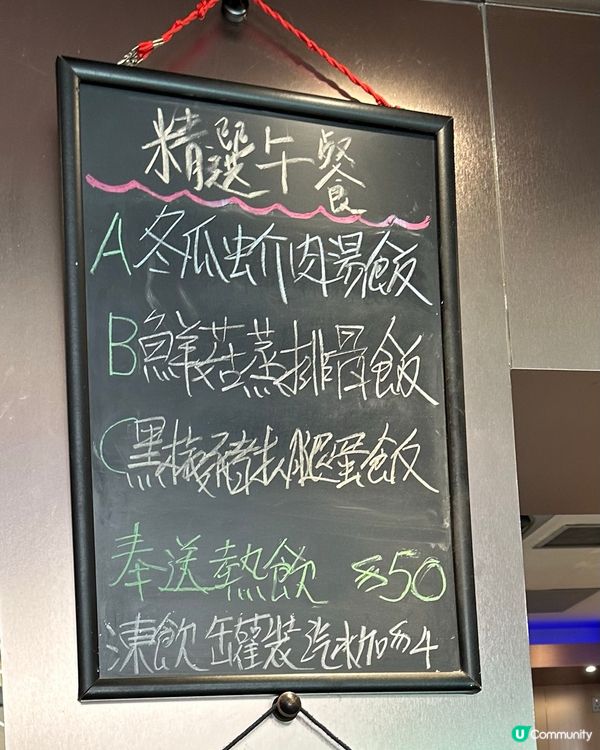 精選午餐
A冬瓜蚧肉湯飯
B鮮菇蒸排骨飯
C黑椒豬扒腿蛋飯
奉送熱飲 $50
凍飲 罐裝汽水加$4
U Community